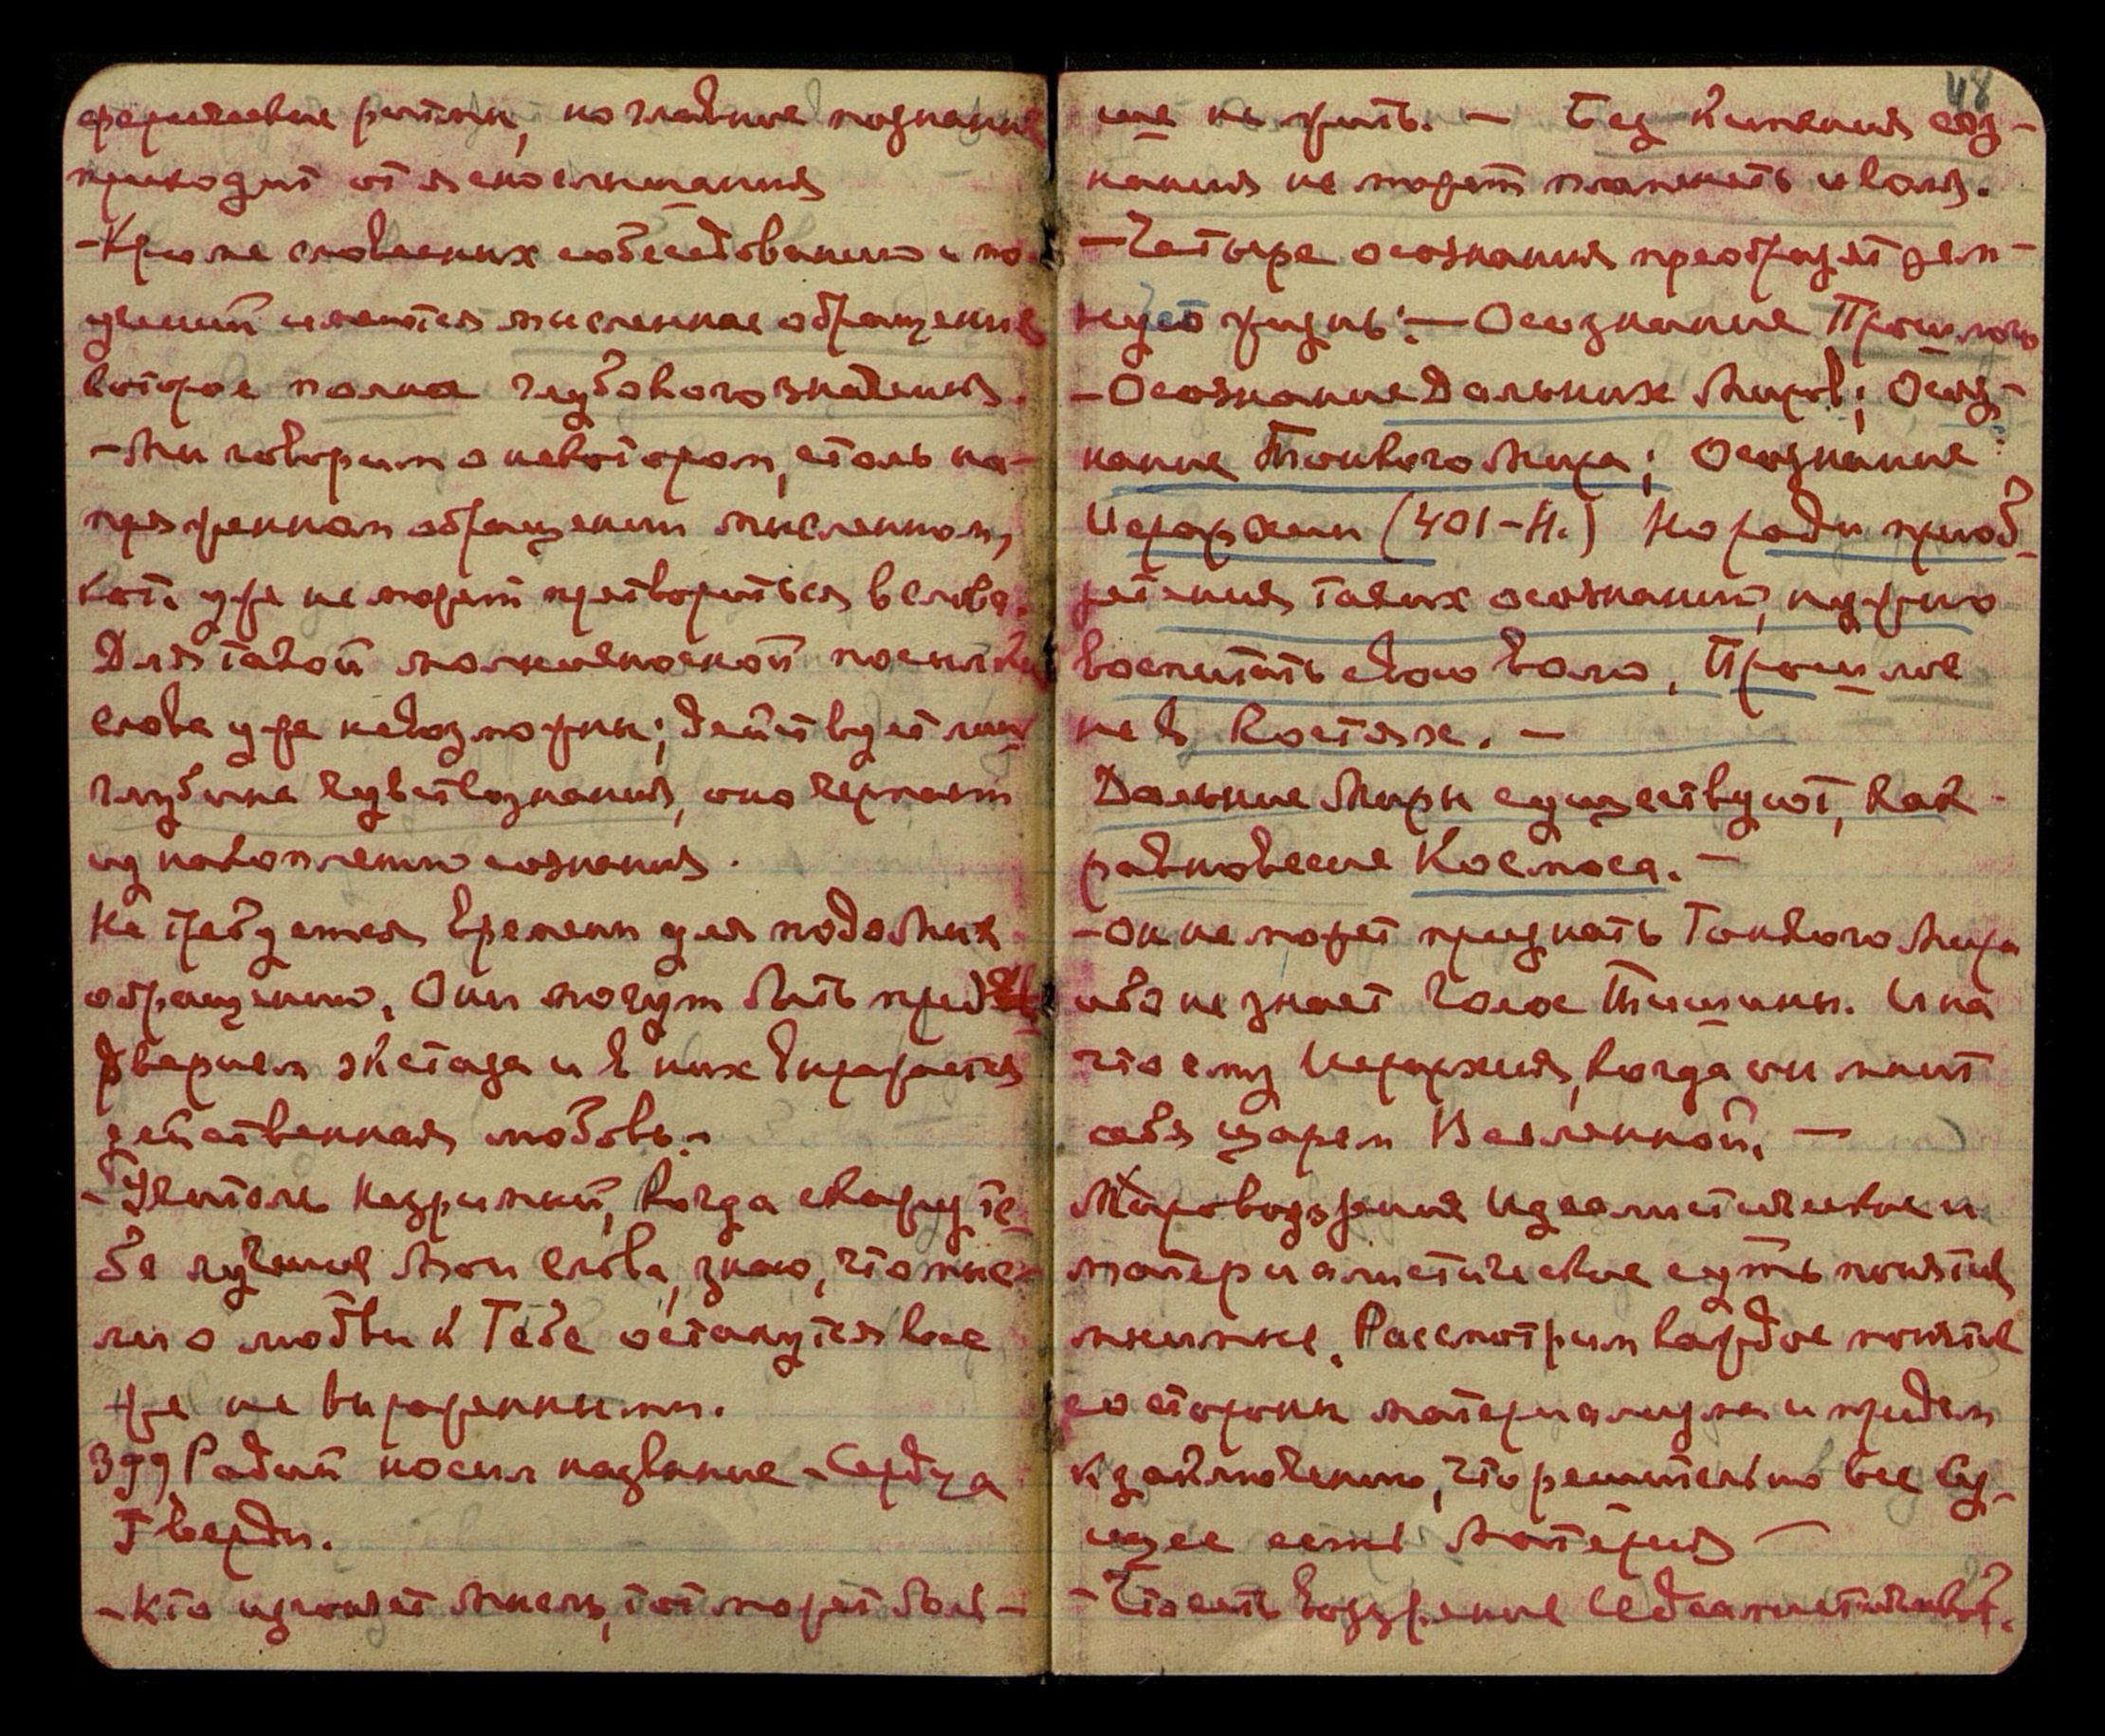 ферические ритмы, но главное познание
приходит от яснослышания
-Кроме словесных собеседований и по-
учений имеются мысленное обращение
которое полна глубокого значения.
-Мы говорим о некотором, столь на-
пряженном обращении мысленном,
кот. уже не может претвориться в слова.
Для такой молниеносной посылки
слова уже невозможны; действует лиш
глубина чувствознания, оно черпает
из накоплений сознания.
Не требуется времени для подобных
обращений. Они могут быть пред
дверием экстаза и в них выражается
действенная любовь.-
-Учитель Незримый, когда скажу Те-
бе лучшие Мои слова, знаю, что мыс-
ли о любви к Тебе останутся все
же не выраженными.
399 Радий носил название - Сердца
Тверди.
-Кто изгоняет Мысль, тот может боль-
48
ше не жить. - Без кипения соз-
нания не может пламенеть и воля.
-Четыре осознания преобразят зем-
ную жизнь: - Осознание Прошлого
-Осознание Дальних Миров; Осоз-
нание Тонкого Мира; Осознание
Иерархии (401-Н.) Но ради приоб-
ретения таких осознаний, нужно
воспитать свою волю, Прошлое
не в Костях. -
Дальние Миры существуют, как
равновесие Космоса. -
-Он не может признать Тонкого Мира
ибо не знает Голос Тишины. И на
что ему Иерархия, когда он мнит
себя царем Вселенной. -
Мировоззрения Идеалистические и
материалистические суть понятия
мнимые. Рассмотрим каждое понятие
со стороны материализма и придем
к заключению, что решительно все Су-
щее есть Материя -
-Что есть воззрение Идеалистическое?